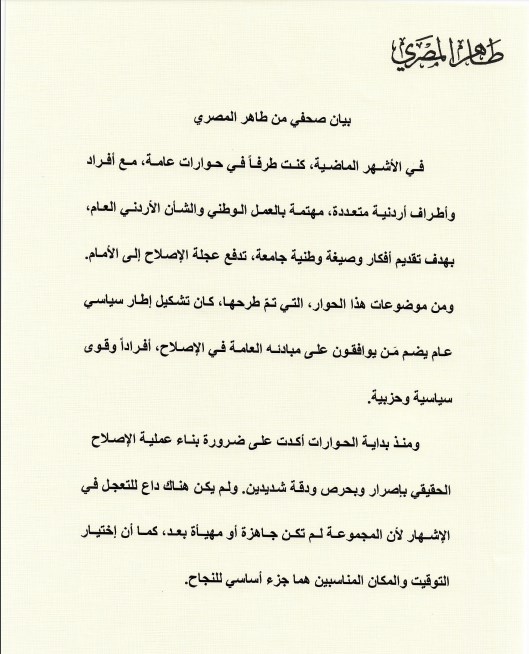 طاهر المصري
بيان صحفي من طاهر المصري
في الأشهر الماضية، كنت طرفاً في حوارات عامة، مع أفراد
وأطراف أردنية متعددة، مهتمة بالعمل الوطني والشأن الأردني العام،
بهدف تقديم أفكار وصيغة وطنية جامعة، تدفع عجلة الإصلاح إلى الأمام.
ومن موضوعات هذا الحوار، التي تمّ طرحها، كان تشكيل إطار سياسي
عام يضم مَن يوافقون على مبادئه العامة في الإصلاح، أفراداً وقوى
سياسية وحزبية.
ومنذ بداية الحوارات أكدت على ضرورة بناء عملية الإصلاح
الحقيقي بإصرار وبحرص ودقة شديدين. ولم يكن هناك داع للتعجل في
الإشهار لأن المجموعة لم تكن جاهزة أو مهيأة بعد، كما أن إختيار
التوقيت والمكان المناسبين هما جزء أساسي للنجاح.